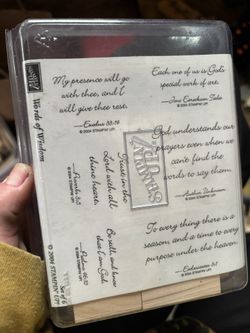 Words of Wisdom
My presence will go
with thee, and I
will give thee rest.
—Exodus 33:14
© 2004 STAMPIN' UP!
Each one of us is God's
special work of art.
—Joni Eareckson Tada
© 2004 STAMPIN' UP!
God understands our
prayers even when we
can't find the
words to say them.
—Author Unknown
© 2004 STAMPIN' UP!
Trust in the
Lord with all
thine heart.
—Proverbs 3:5
© 2004 STAMPIN' UP!
Be still, and know
that I am God.
—Psalm 46:10
© 2004 STAMPIN' UP!
To every thing there is a
season, and a time to every
purpose under the heaven.
—Ecclesiastes 3:1
© 2004 STAMPIN' UP!
STAMPIN' UP!
© 2004 STAMPIN' UP!
Set of 6